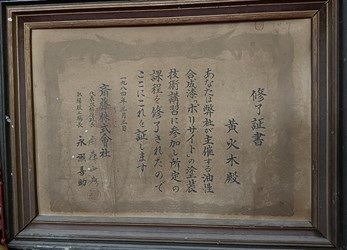 修了証書
黄火木殿
あなたは弊社が主催する油性
合成漆"ポリサイト"の塗装
技術講習に参加し所定の
課程を修了されたので
ここにこれを証します
一九八四年三月三日
斎藤株式会社